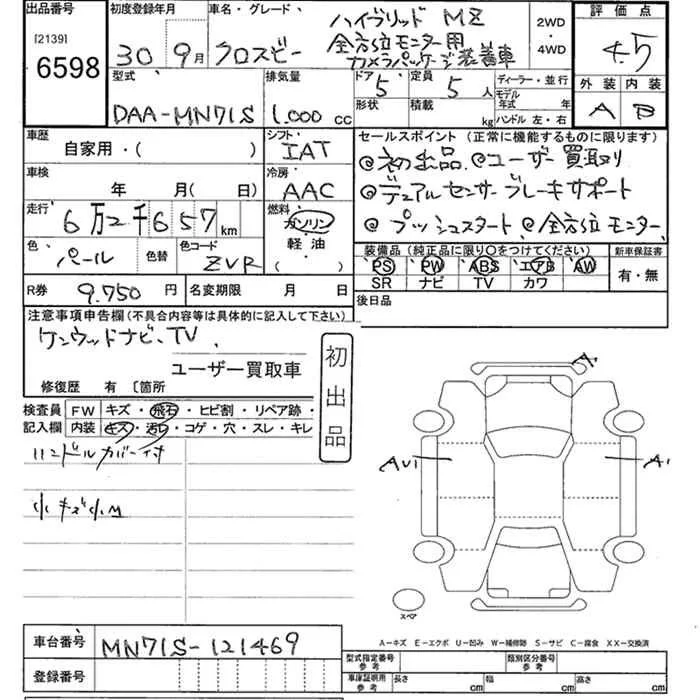 出品番号 初度登録年月 車名・グレード ハイブリッド MZ 2WD ・ 4WD 評価点
[2139] 6598 30年 9月 クロスビー 全方位モニター用 カメラパッケージ装着車 4.5
型式 排気量 ドア 5 定員 5人 ディーラー・並行 外装 内装
DAA-MN71S 1,000 cc 形状 積載 kg モデル年式 年 ハンドル 左・右 A B
車歴 自家用・( ) シフト IAT セールスポイント (正常に機能するものに限ります)
◎初出品 ◎ユーザー買取り
車検 年 月(日) 冷房 AAC ◎デュアルセンサーブレーキサポート
走行 6万2千657km 燃料 ガソリン 軽油 ( ) ◎プッシュスタート ◎全方位モニター
色 パール 色替 色コード ZVR 装備品 (純正品に限り〇をつけてください) 新車保証書
PS PW ABS エアB AW 有・無
SR ナビ TV カワ
R券 9.750円 名変期限 月 日 後日品
注意事項申告欄(不具合内容等は具体的に記入して下さい)
ケンウッドナビ、TV、
ユーザー買取車
初出品
修復歴 有 〔箇所
検査員記入欄 FW キズ・飛石・ヒビ割・リペア跡・
内装 キズ・汚れ・コゲ・穴・スレ・キレ
ハンドルカバー付
小キズ小M
A
AU1 A1
スペア
A-キズ E-エクボ U-凹み W-補修跡 S-サビ C-腐食 XX-交換済
車台番号 MN71S-121469
型式指定番号 参考 類別区分番号 参考
登録番号 車庫証明用 参考 長さ cm 幅 cm 高さ cm